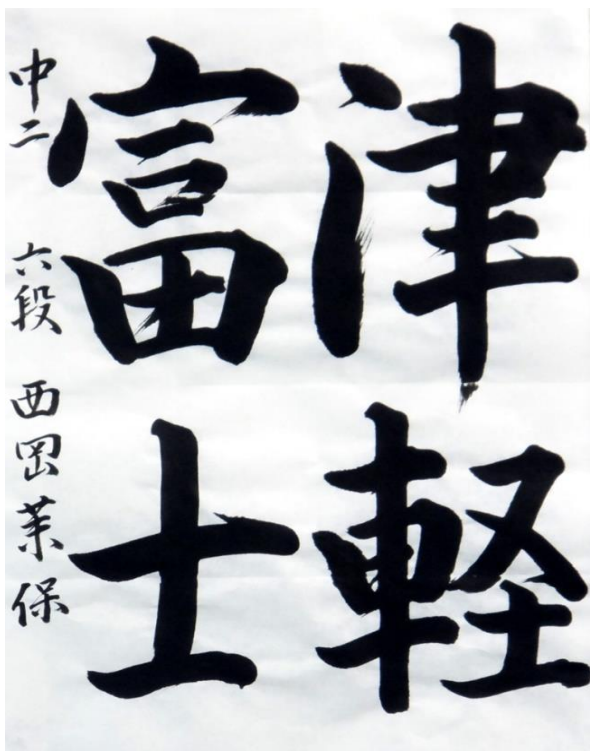 津軽
富士
中二 六段 西岡茉保